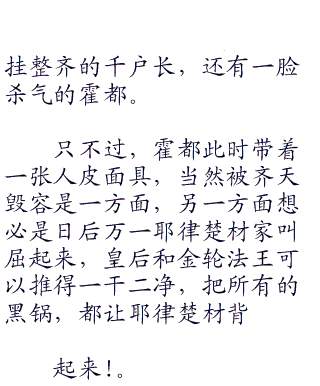 挂整齐的千户长，还有一脸
杀气的霍都。
只不过，霍都此时带着
一张人皮面具，当然被齐天
毁容是一方面，另一方面想
必是日后万一耶律楚材家叫
屈起来，皇后和金轮法王可
以推得一干二净，把所有的
黑锅，都让耶律楚材背
起来!。